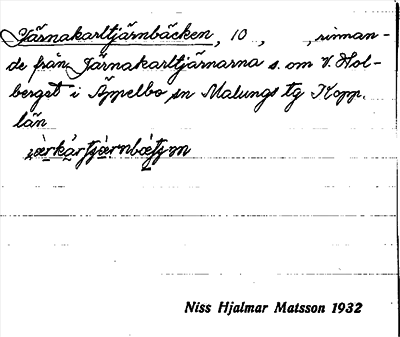 Järnakarltjärnbäcken, 10 , , rinnan-
de från Järnakarltjärnarna s. om V. Hol-
berget i Äppelbo sn Malungs tg Kopp.
län
Niss Hjalmar Matsson 1932